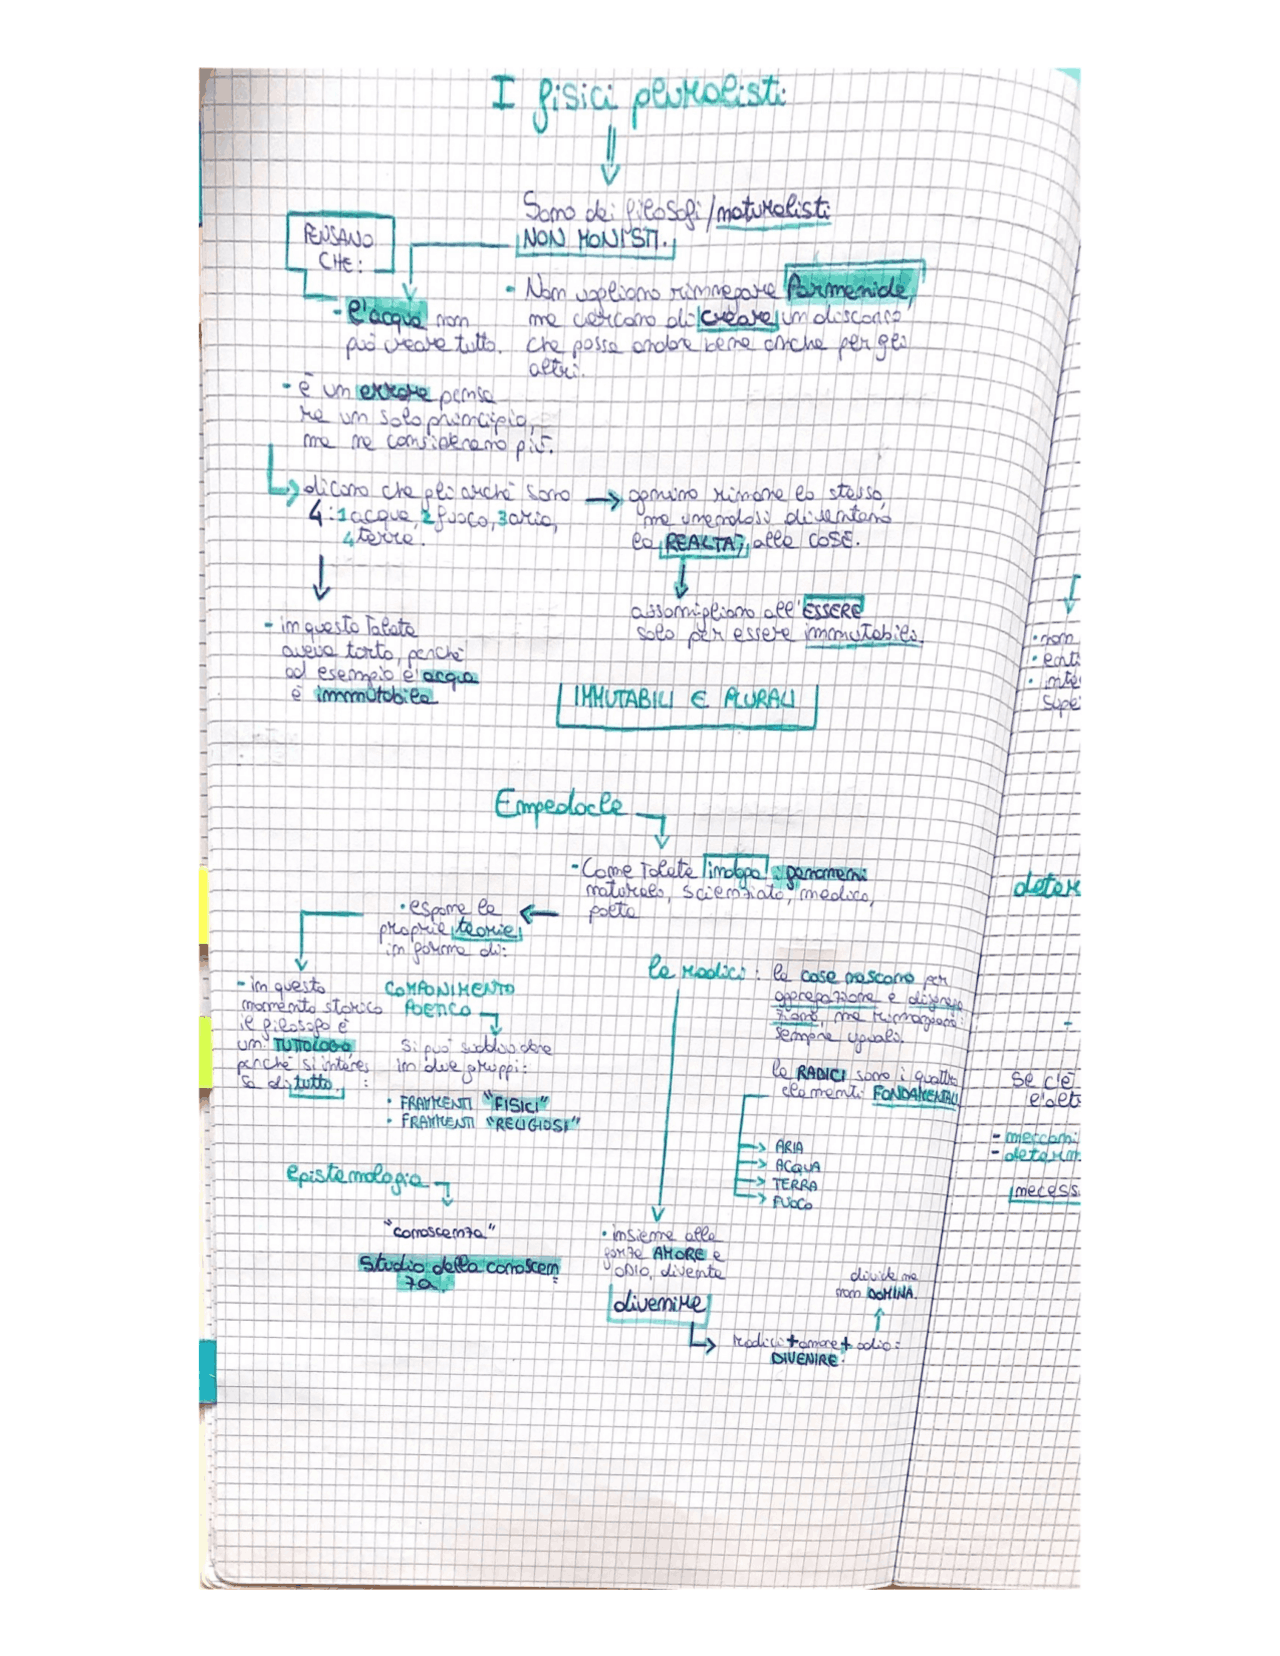 I fisici pluralisti
Sono dei filosofi/naturalisti
NON MONISTI.
PENSANO
CHE:
- l'acqua non
può creare tutto.
• Non vogliono rinnegare Parmenide,
ma cercano di creare un discorso
che possa andare bene anche per gli
altri.
- è un errore pensa
re un solo principio,
ma ne consideriamo più.
dicono che gli archè sono
4: 1 acqua, 2 fuoco, 3 aria,
4 terra.
ognuno rimane lo stesso,
ma unendosi diventano
la REALTA', alle COSE.
- in questo Talete
aveva torto, perchè
ad esempio l'acqua
è immutabile
assomigliano all'ESSERE
solo per essere immutabili.
IMMUTABILI E PLURALI
Empedocle
- Come Talete indaga i fenomeni
naturali, scienziato, medico,
poeta
• espone le
proprie teorie
in forma di:
COMPONIMENTO
POETICO
si può suddividere
in due gruppi:
• FRAMMENTI "FISICI"
• FRAMMENTI "RELIGIOSI"
- in questo
momento storico
il filosofo è
un TUTTOLOGO
perchè si interes
sa di tutto. :
le radici: le cose nascono per
aggregazione e disgrega
zione, ma rimangono
sempre uguali.
le RADICI sono i quattro
elementi FONDAMENTALI
ARIA
ACQUA
TERRA
FUOCO
epistemologia
"conoscenza"
Studio della conoscen
za.
• insieme alle
forze AMORE e
ODIO, diventa
divenire
radici + amore + odio =
DIVENIRE.
divide ma
non DOMINA.
• non
• inte
supe
deter
se c'è
- meccani
- determ
necess